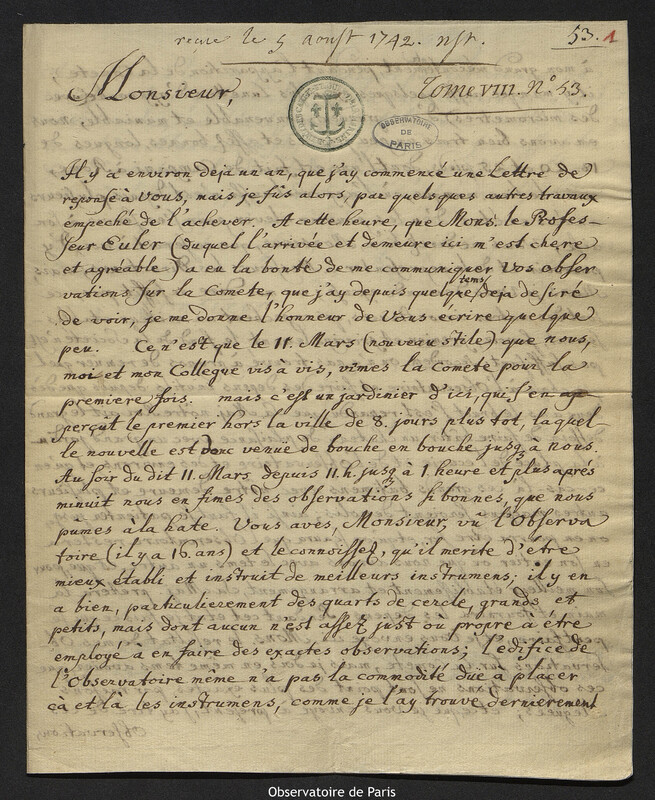 reçue le 5 aoust 1742. nst.
53. 1
Monsieur,
Tome VIII. N.° 53.
OBSERVATOIRE
DE
PARIS
Il y a environ deja un an, que j'ay commencé une Lettre de
reponse à Vous, mais je fûs alors, par quelsques autres travaux
empeché de l'achever. A cette heure, que Mons. le Profes-
seur Euler (duquel l'arrivée et demeure ici m'est chere
et agréable) a eu la bonté de me communiquer Vos obser
vations sur la Comete, que j'ay depuis quelque tems deja desiré
de voir, je me donne l'honneur de Vous ecrire quelque
peu. Ce n'est que le 11. Mars (nouveau stile) que nous,
moi et mon Collegue vis à vis, vîmes la Comete pour la
premiere fois. mais c'est un jardinier d'ici, qui s'en ap-
perçuit le premier hors la ville de 8. jours plus tot, laquel-
le nouvelle est donc venuë de bouche en bouche jusq à nous.
Au soir du dit 11. Mars depuis 11. h. jusq à 1 heure et plus aprés
minuit nous en fimes des observations si bonnes, que nous
pûmes à la hate. Vous avés, Monsieur, vû l'Observa
toire (il y a 16. ans) et le connoissez, qu'il merite d'étre
mieux établi et instruit de meilleurs instrumens; il y en
a bien, particulierement des quarts de cercle, grands et
petits, mais dont aucun n'est assez just où propre à étre
employé à en faire des exactes observations; l'edifice de
l'Observatoire même n'a pas la commodité due à placer
çà et là les instrumens, comme je l'ay trouvé dernierement
Observatoire de Paris